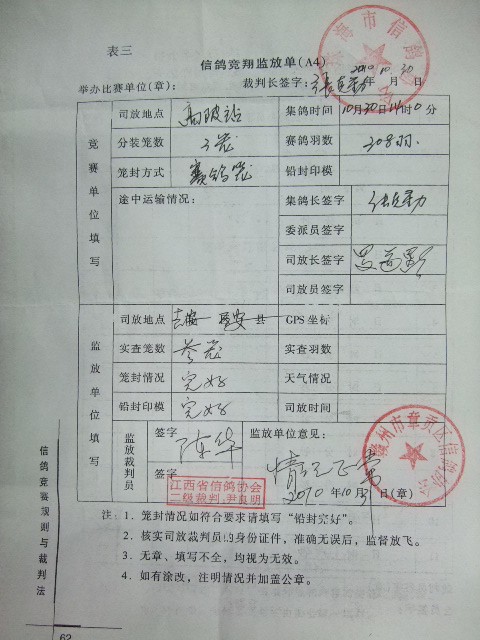 表三
信鸽竞翔监放单(A4)
2010 10 30
举办比赛单位(章): 裁判长签字: 年 月 日
竞赛单位填写
司放地点 高陂站 集鸽时间 10月30日14时0分
分装笼数 3笼 赛鸽羽数 208羽.
笼封方式 赛鸽笼 铅封印模
途中运输情况: 集鸽长签字
委派员签字
司放长签字
司放员签字
监放单位填写
司放地点 吉安 县 GPS坐标
实查笼数 叁笼 实查羽数
笼封情况 完好 天气情况
铅封印模 完好 司放时间
监放裁判员 签字 陈华 监放单位意见:
签字 情况正常
江西省信鸽协会
二级裁判:尹良明
2010年10月31(章)
注: 1. 笼封情况如符合要求请填写“铅封完好”。
2. 核实司放裁判员的身份证件,准确无误后,监督放飞。
3. 无章、填写不全,均视为无效。
4. 如有涂改,注明情况并加盖公章。
信鸽竞赛规则与裁判法
62
赣州市章贡区信鸽协会